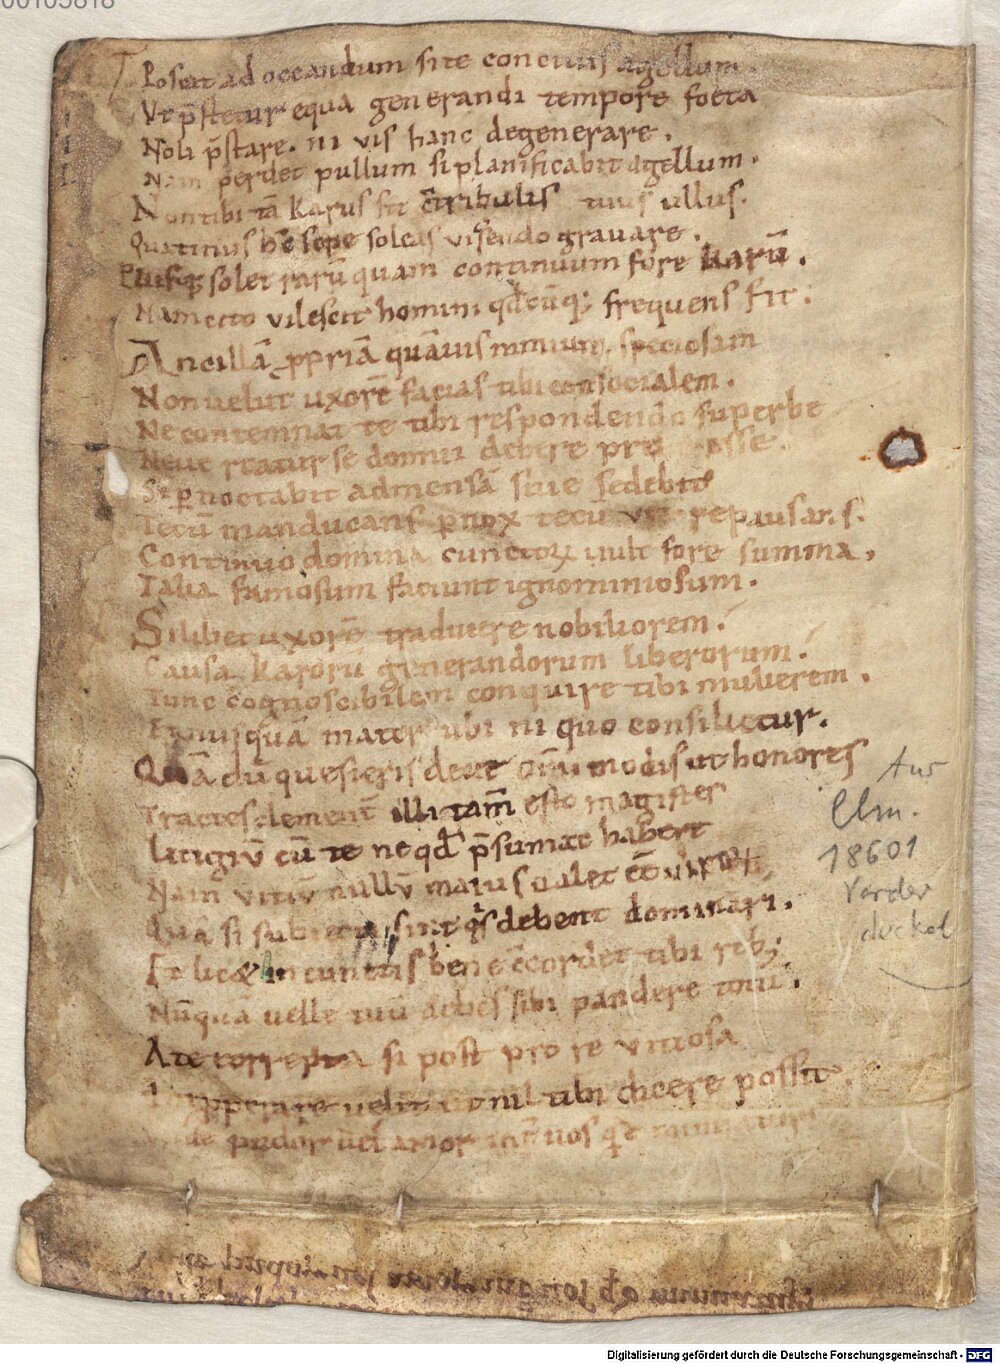 00103818
Poscit ad occandum si te concivis agellum.
Ut p̄stetur equa generandi tempore foeta
Noli p̄stare. ni vis hanc degenerare.
Nam perdet pullum si planificabit agellum.
Non tibi tā karus sit c̄tribulis tuus ullus.
Quatinus hc̄ sepe soleas visendo gravare.
solet rarū quam continuum fore karū.
Nam cito vilescit homini qd̄cūq; frequens fit.
Ancillā ꝓpriā quāvis nimium speciosam
Non velut uxorē facias tibi consocialem.
Ne contemnat te tibi respondendo superbe
Neve reatur se domui debere pre esse.
Si ꝑnoctabit ad mensā sive sedebit
Tecū manducans ꝑnox tecū repausans.
Continuo domina cunctoꝝ vult fore summa,
Talia famosum faciunt ignominiosum.
Si libet uxorē traducere nobiliorem.
Causa karorū generandorum liberorum.
Tunc cognoscibilem conquire tibi mulierem.
mater ubi ni quo consilietur.
Quā dū quesieris dece om̄imodis ut honores
Tractes clement̄ illi tam̄ esto magister
Litigiū cū te ne qd̄ p̄sumat habere
Nam vitiū nullū maius valet
Quā si subiecti sint qͥs debent dominari.
Et licet in cunctis bene c̄cordet tibi reb;
Nūquā velle tuū debes sibi pandere totū.
A te correpta si post pro re vitiosa
velit ut nil tibi dicere possit.
pudor vel amor int̄ vos
Aus
Clm.
18601
Vorder
deckel
Digitalisierung gefördert durch die Deutsche Forschungsgemeinschaft - DFG